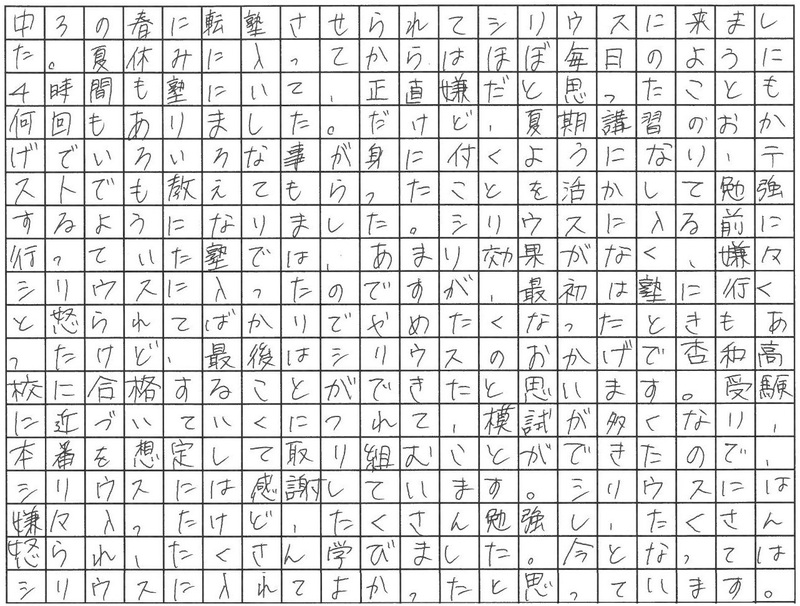 中3の春に転塾させられてシリウスに来まし
た。夏休みに入ってからはほぼ毎日のように
4時間も塾にいて、正直嫌だと思ったことも
何回もありました。だけど、夏期講習のおか
げでいろいろな事が身に付くようになり、テ
ストでも教えてもらったことを活かして勉強
するようになりました。シリウスに入る前に
行っていた塾では、あまり効果がなく、嫌々
シリウスに入ったのですが、最初は塾に行く
と怒られてばかりでやめたくなったときもあ
ったけど、最後はシリウスのおかげで杏和高
校に合格することができたと思います。受験
に近づいていくにつれて、模試が多くなり、
本番を想定して取り組むことができたので、
シリウスには感謝しています。シリウスには
嫌々入ったけど、たくさん勉強し、たくさん
怒られ、たくさん学びました。今となっては
シリウスに入れてよかったと思っています。